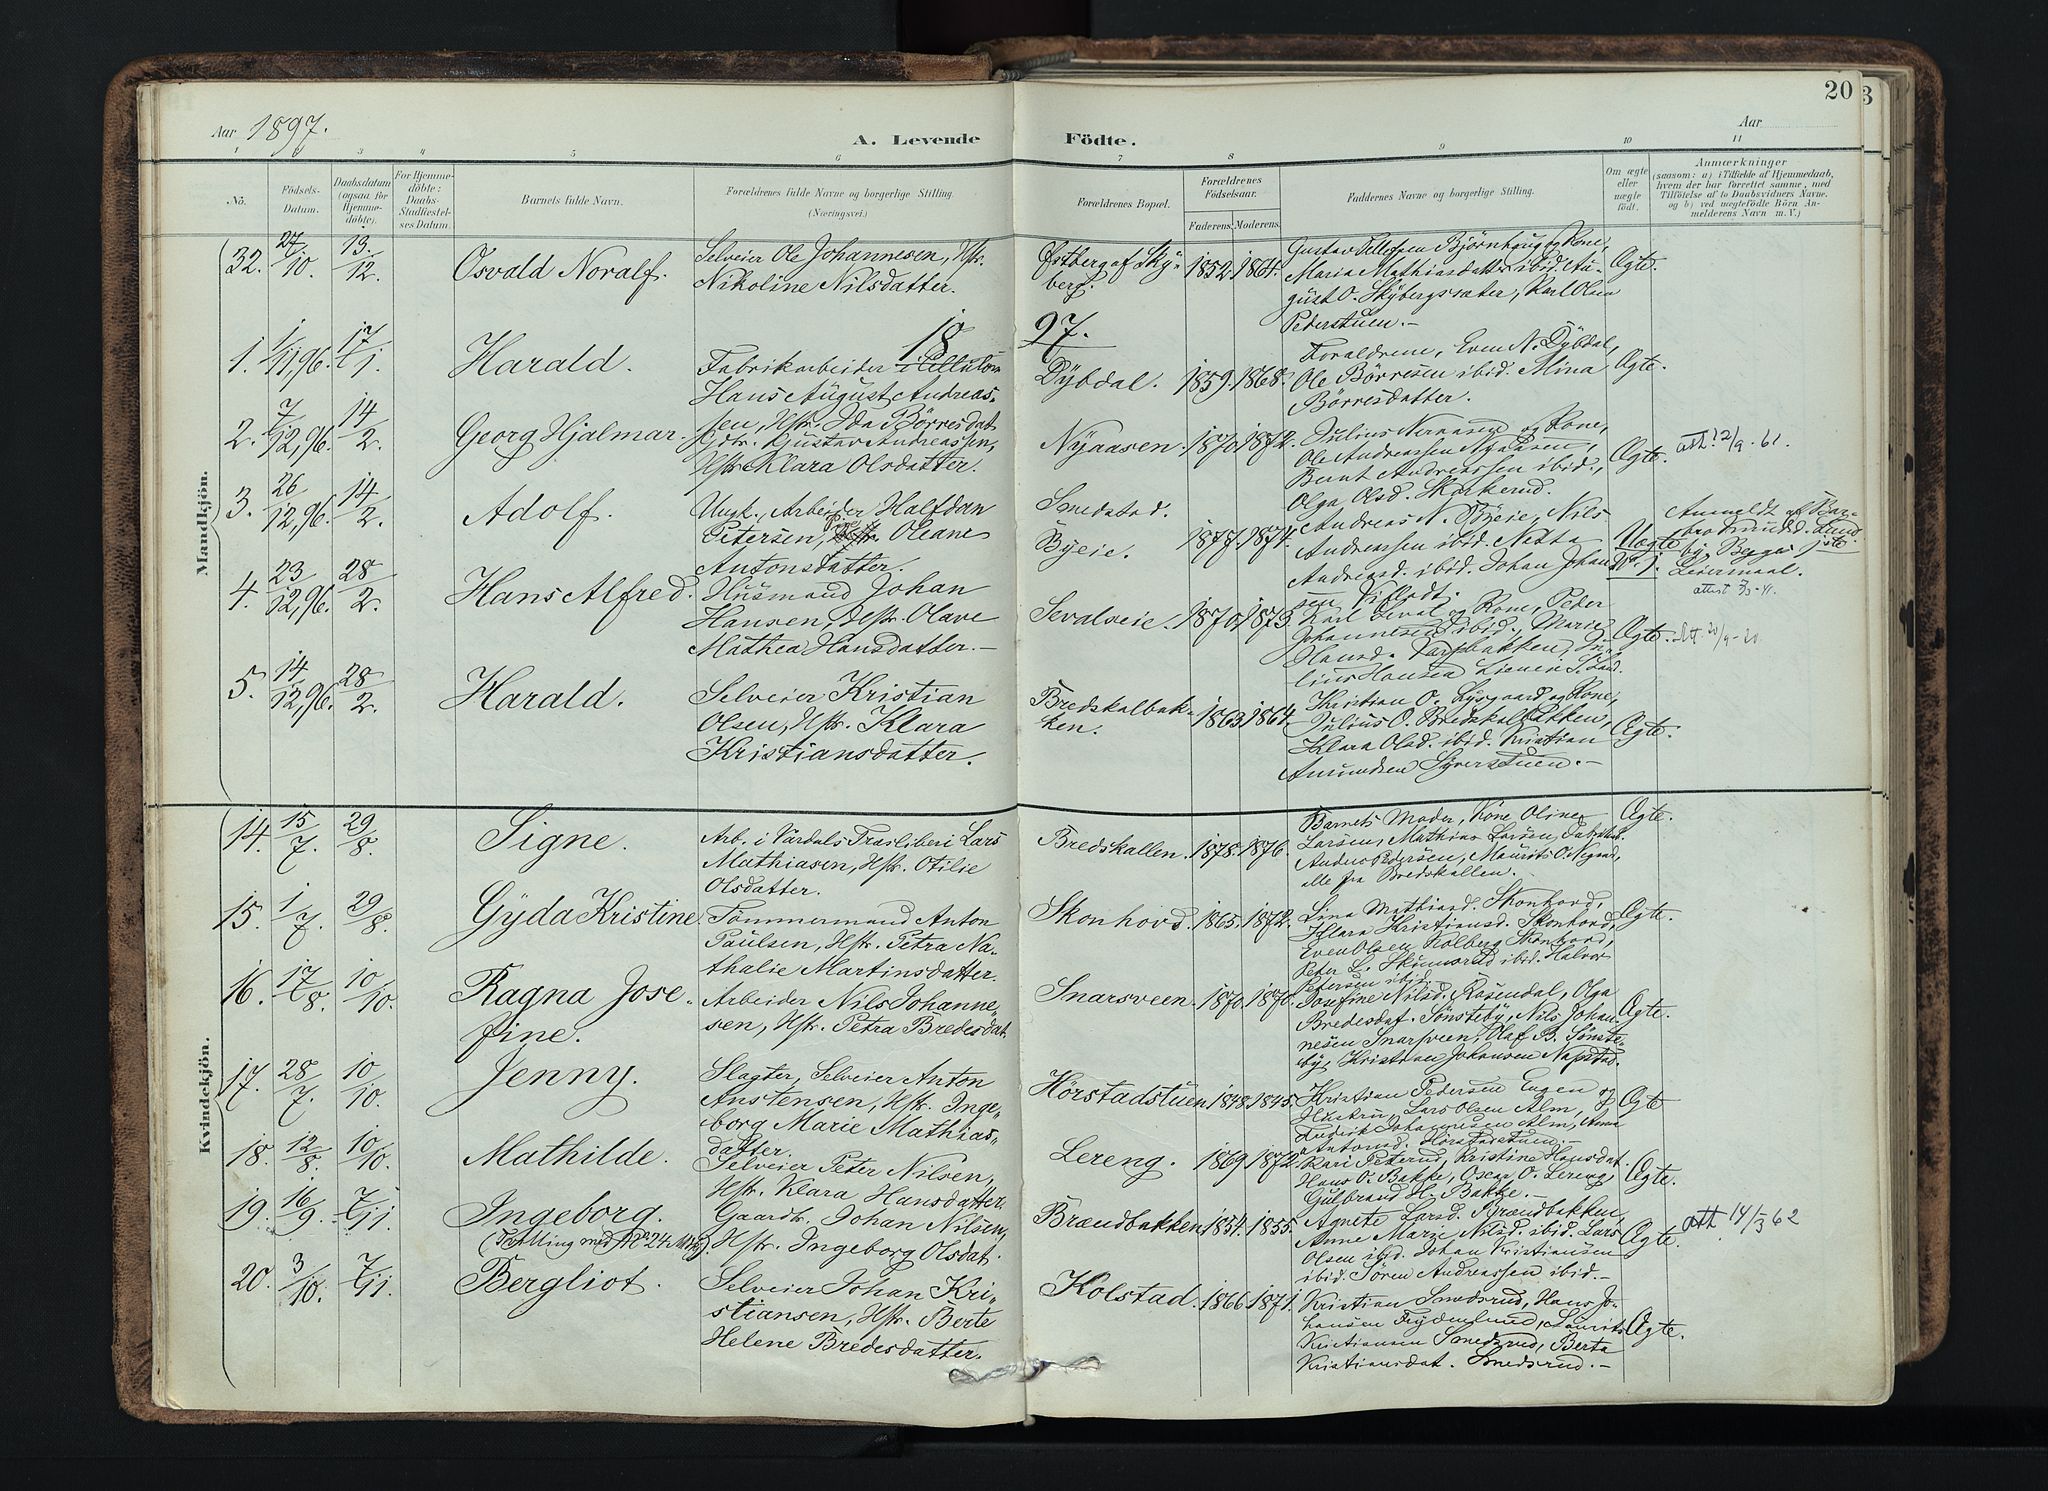 20
3
Aar 1897.
A. Levende
Födte.
Aar
1 2 3 4 5 6 7 8 9 10 11
No.
Födsels-
Datum.
Daabsdatum
(ogsaa for
Hjemme-
döbte).
For Hjemme-
döbte:
Daabs-
Stadfæstel-
ses Datum.
Barnets fulde Navn.
Forældrenes fulde Navne og borgerlige Stilling.
(Næringsvei.)
Forældrenes Bopæl.
Forældrenes
Födselsaar.
Faderens. Moderens.
Faddernes Navne og borgerlige Stilling.
Om ægte
eller
uægte
födt.
Anmærkninger
(saasom: a) i Tilfælde af Hjemmedaab,
hvem der har forrettet samme, med
Tilföielse af to Daabsvidners Navne.
og b) ved uægtefödte Börn An-
melderens Navn m. V.)
Mandkjön.
32. 27/10. 13./12. Osvald Noralf.
Selveier Ole Johannesen, Hstr.
Nikoline Nilsdatter.
Østberg af Sky-
berg. 1852. 1861.
Maria Mathiasdatter ibid. Au-
gust O. Skybergsæter, Karl Olsen
Pederstuen. -
Ægte.
18 97.
1. 1/11,96. 17/1. Harald.
Fabrikarbeider
Hans August Andreas-
sen, Hstr. Ida Børresdat.
Dybdal. 1859. 1868.
Forældrene, Even N. Dybdal,
Ole Børresen ibid. Mina
Børresdatter.
Ægte.
2. 7/12,96. 14/2. Georg Hjalmar.
Gdbr. Gustav Andreassen,
Hstr. Klara Olsdatter.
Nyaasen. 1870. 1872.
Ole Andreassen Nyaasen,
Bernt Andreassen ibid.,
Olga Olsd. Skarkerud.
Ægte. att. 12/9.61.
3. 26/12,96. 14/2. Adolf.
Ungk., Arbeider Halfdan
Petersen, Pige Oleane
Antonsdatter.
Smedstad.
Byeie. 1877. 1874.
Andreas N. Byeie, Nils
Andreassen ibid.
Andreasd. ibid. Johan Johan-
Uægte
Anmeldt af Bar-
Leiermaal.
attest
4. 23/12,96. 28/2. Hans Alfred.
Husmand Johan
Hansen, Hstr. Olave
Mathea Hansdatter. -
Sevalseie. 1870. 1873.
Karl Seval og Kone, Peder
Johannesen ibid., Marie
Ægte. Att. 20/9-20.
5. 14/12,96. 28/2. Harald.
Selveier Kristian
Olsen, Hstr. Klara
Kristiansdatter.
Bredskalbak-
ken. 1863. 1864.
Julius O. Bredskalbakken,
Klara Olsd. ibid. Kristian
Amundsen Syverstuen. -
Ægte.
Kvindekjön.
14. 15/7. 29/8. Signe.
Arb. i Vardals Træsliberi Lars
Mathiasen, Hstr. Otilie
Olsdatter.
Bredskallen. 1878. 1876.
Barnets Moder, Kone Oline
Larsen, Mathias Larsen,
Anders Pedersen, Maurits O.
alle fra Bredskallen.
Ægte.
15. 1/7. 29/8. Gyda Kristine
Tømmermand Anton
Paulsen, Hstr. Petra Na-
thalie Martinsdatter.
Skonhovd. 1865. 1872.
Lina Mathiasd. Skonhovd,
Klara Kristiansd. Skonhovd,
Even Olsen Kolberg Skonhovd,
Peter L. Skumsrud ibid. Halvor
Petersen ibid.
Ægte.
16. 17/8. 10/10. Ragna Jose-
fine.
Arbeider Nils Johanne-
sen, Hstr. Petra Bredesdat.
Snarsveen. 1870. 1870.
Josefine Nilsd. Rosendal, Olga
Bredesdat. Sønsteby, Nils Johan-
nesen Snarsveen, Olaf B. Sønste-
by, Kristian Johansen Napstad.
Ægte.
17. 28/7. 10/10. Jenny.
Slagter, Selveier Anton
Anstensen, Hstr. Inge-
borg Marie Mathias-
datter.
Hørstadstuen 1848. 1845.
Kristian Pedersen Engen og
Hustru, Lars Olsen Alm,
Fredrik Johannesen Alm, Anna
Antonsd. Hørstadstuen. -
Ægte
18. 12/8. 10/10. Mathilde.
Selveier Peter Nilsen,
Hstr. Klara Hansdatter.
Lereng. 1869. 1872.
Kari Peterud, Kristine Hansdat.
Hans O. Bakke, Oscar O. Lereng,
Gulbrand H. Bakke. -
Ægte.
19. 16/9. 7/11. Ingeborg.
(Tvilling med No 24 Mdk.)
Gaardbr. Johan Nilsen,
Hstr. Ingeborg Olsdat.
Brændbakken 1854. 1855.
Agnete Larsd. Brændbakken,
Anne Marie Nilsd. ibid. Lars
Olsen ibid. Johan Kristiansen
ibid. Søren Andreassen ibid. -
Ægte. att 14/3 62
20. 3/10. 7/11. Bergliot.
Selveier Johan Kri-
stiansen, Hstr. Berte
Helene Bredesdatter.
Kolstad. 1866. 1871.
Kristian Smedsrud, Hans Jo-
hansen Frydenlund, Laurits
Kristiansen Smedsrud, Berta
Kristiansdat. Smedsrud. -
Ægte.